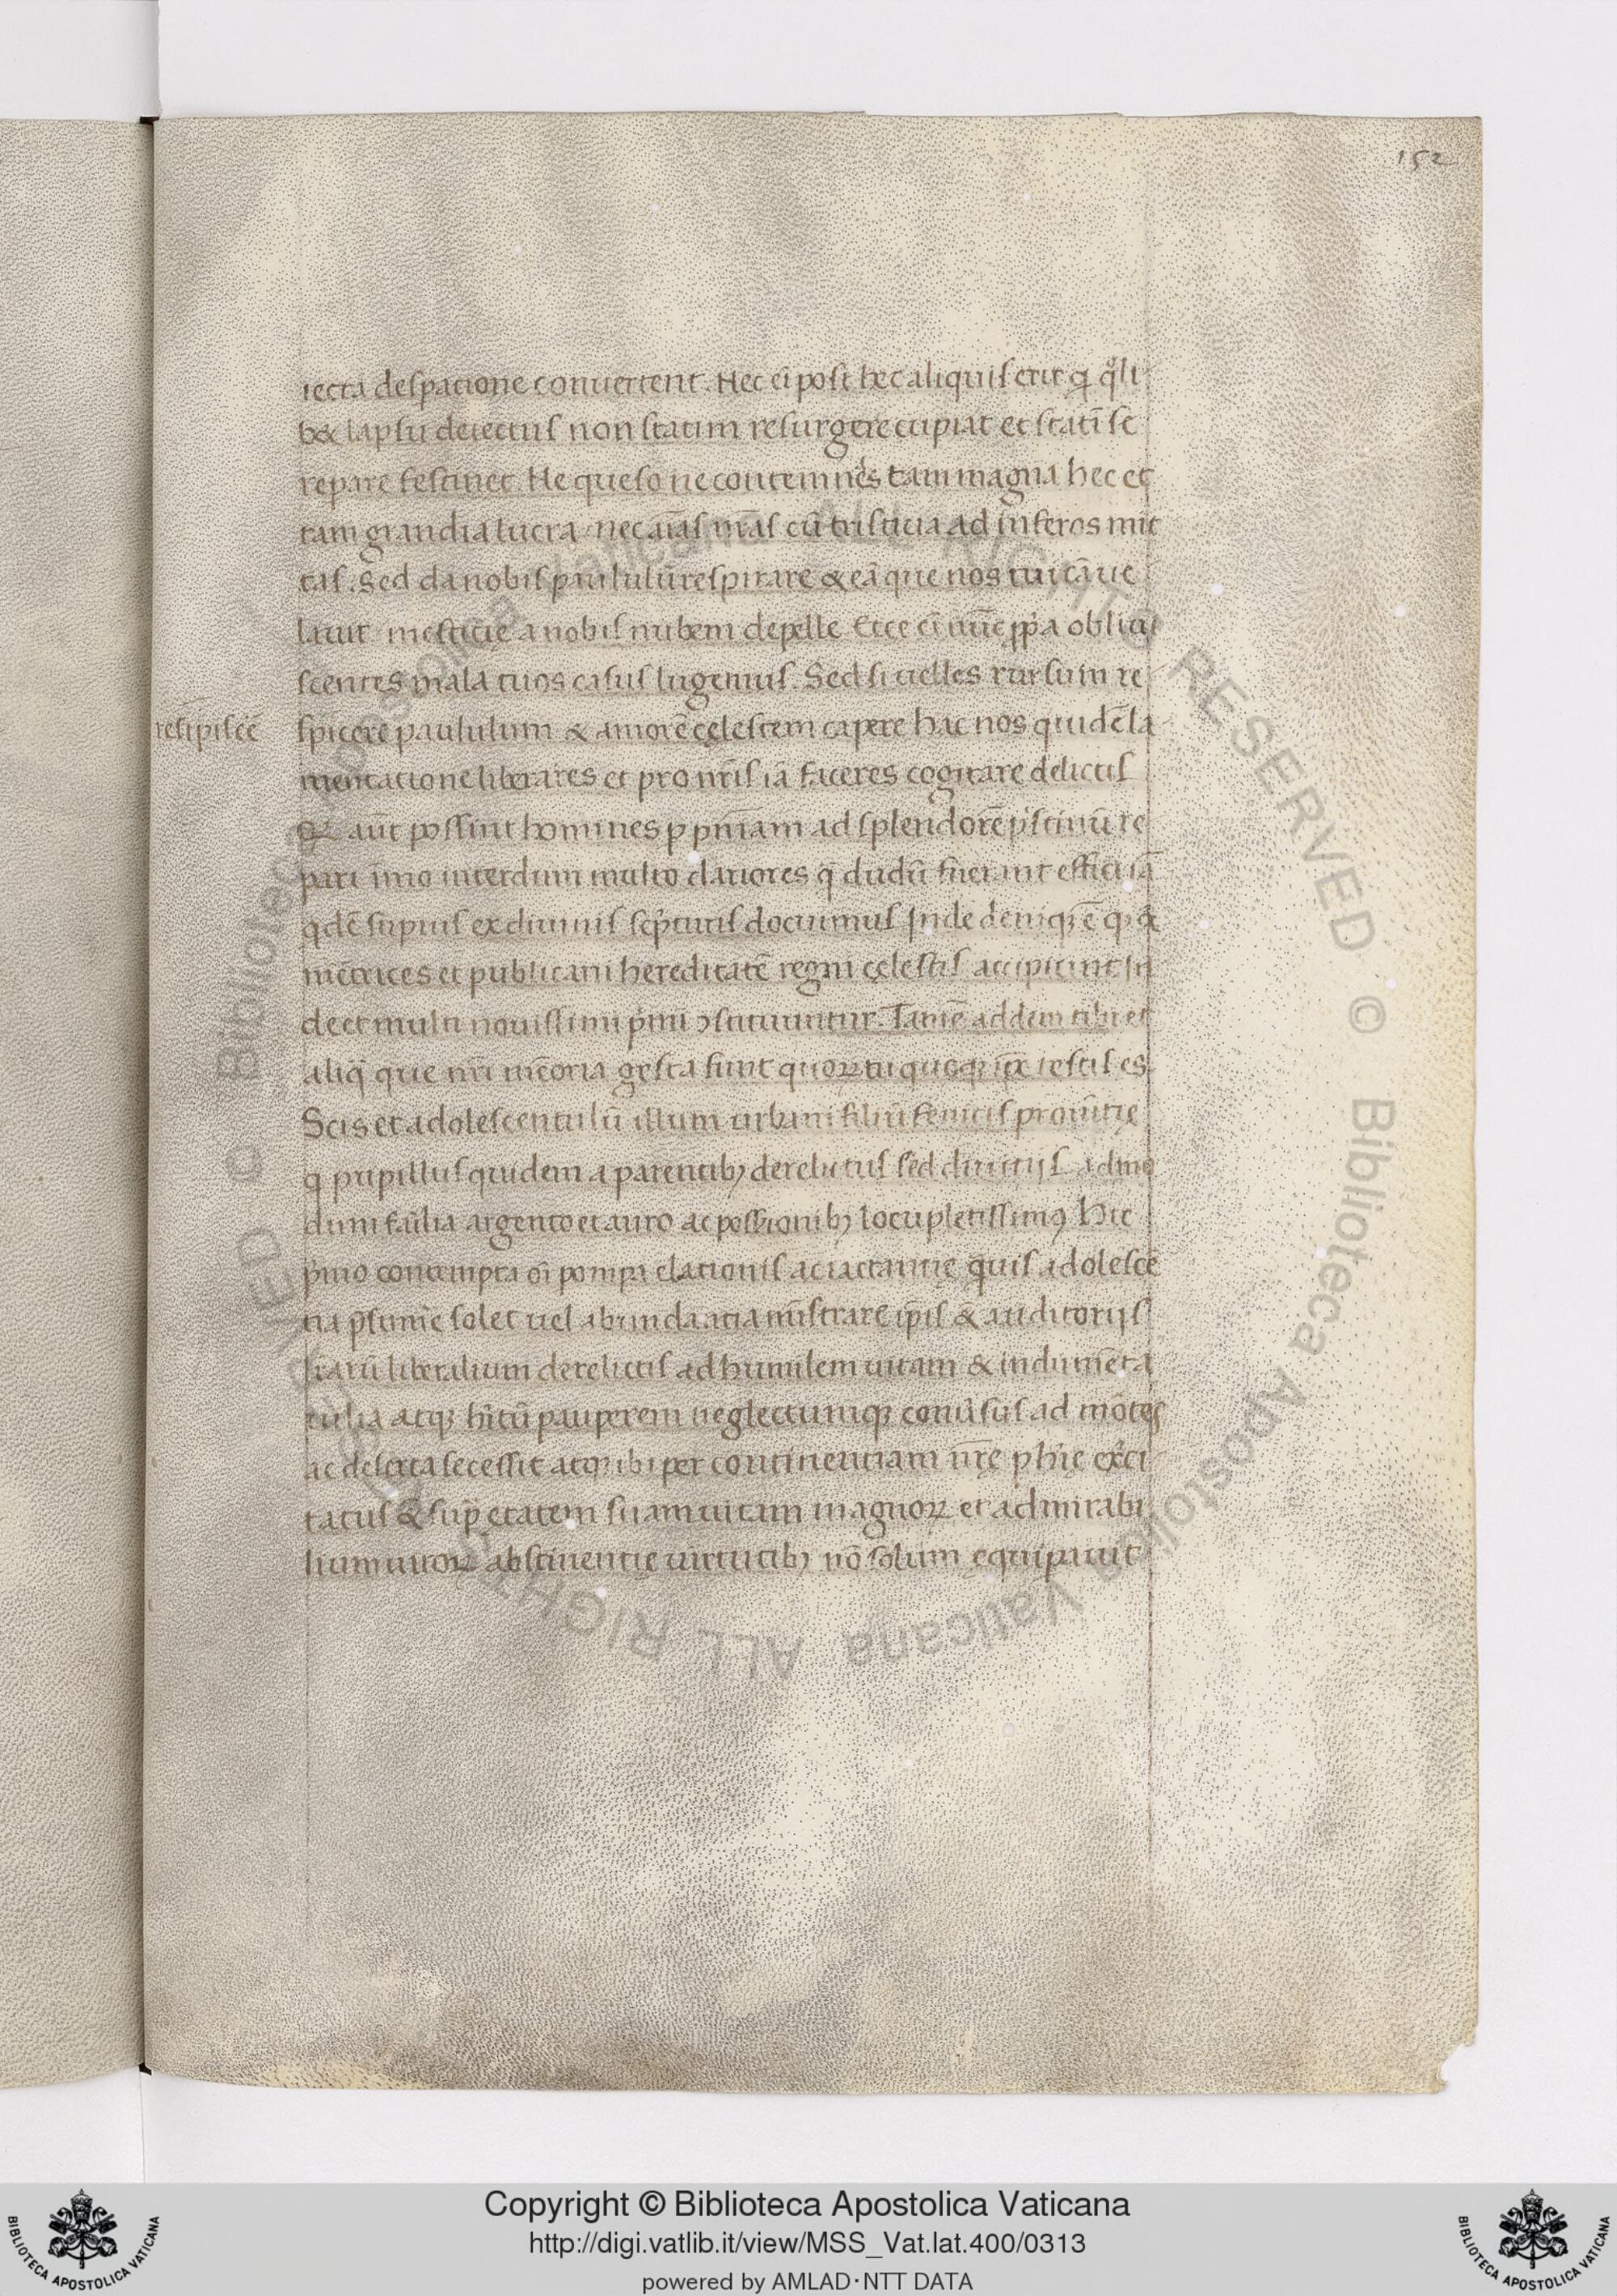 152
iecta despatione conuertent. Nec ei̅ post hec aliquis erit q̲ q̊li
b& lapsu deiectus non statim resurgere cupiat et stati̅ se
repare festinet. Ne queso ne contemnes tam magna hec et
tam grandia lucra nec ai̅as n̅ras cu̅ tristicia ad inferos mit
tas. Sed da nobis paululu̅ respirare & ea̅ que nos tui ca̅ ue
lauit mesticie a nobis nubem depelle Ecce ei̅ nu̅c p̲p̲a obliui
scentes mala tuos casus lugemus. Sed si uelles rursum re
resipisce̅
spicere paululum & amore̅ cęlestem capere hac nos quide̅ la
mentatione liberares et pro n̅ris ia̅ faceres cogitare delictis
Q aut̅ possint homines p̲ pn̅iam ad splendore̅ p'stinu̅ re
pari imo interdum multo clariores q̅ dudu̅ fuerant effici ia̅
q̇de̅ supius ex diuinis sc̅pturis docuimus Inde deniq; e̅ q, &
me̅trices et publicani hereditate̅ regni cęlestis accipiunt In
de et multi nouissimi p'mi ɔstituuntur. Tame̅ addam tibi et
aliq̅ que n̅ri me̅oria gesta sunt quoꝝ tu quoq; ip̅e testis es
Scis et adolescentulu̅ illum urbani filiu̅ fenicis prouin̅tię
q pupillus quidem a parentib; derelictus sed diuitijs admo
dum fam̅lia argento et auro ac possessionib; locupletissimꝰ Hic
p'mo contempta oi̅ pompa elationis ac iactantie q̅uis adolesce̅
tia p̅sume̅ solet uel abundaatia mi̅strare ip̅is & auditorijs
l̅rarū liberalium derelictis ad humilem uitam & indume̅ta
uilia atq; h̅itu̅ pauperem neglectumq; conuersus ad mo̅tes
ac deserta secessit atq; ibi per continentiam n̅rę ph̅ie exerci
tatus & sup̲ etatem suam uitam magnoꝝ et admirabi
lium uiroꝝ abstinentie uirtutib; no̅ solum ęquiparauit
Copyright © Biblioteca Apostolica Vaticana
http://digi.vatlib.it/view/MSS_Vat.lat.400/0313
powered by AMLAD·NTT DATA